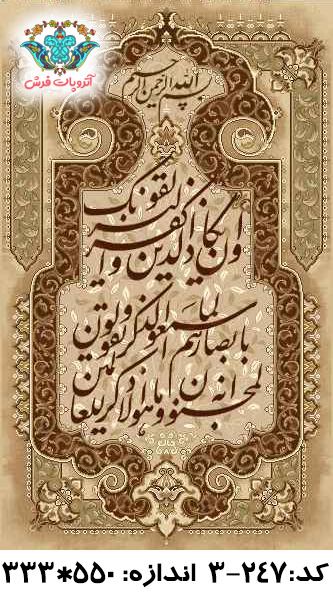 آتروپات فرش
بسم الله الرحمن الرحیم
وان یکاد الذین کفروا لیزلقونک
بابصارهم لما سمعوا الذکر ویقولون
انه لمجنون وما هو الا ذکر للعالمین
کد:۲۴۷-۳ اندازه: ۵۵۰*۳۳۳